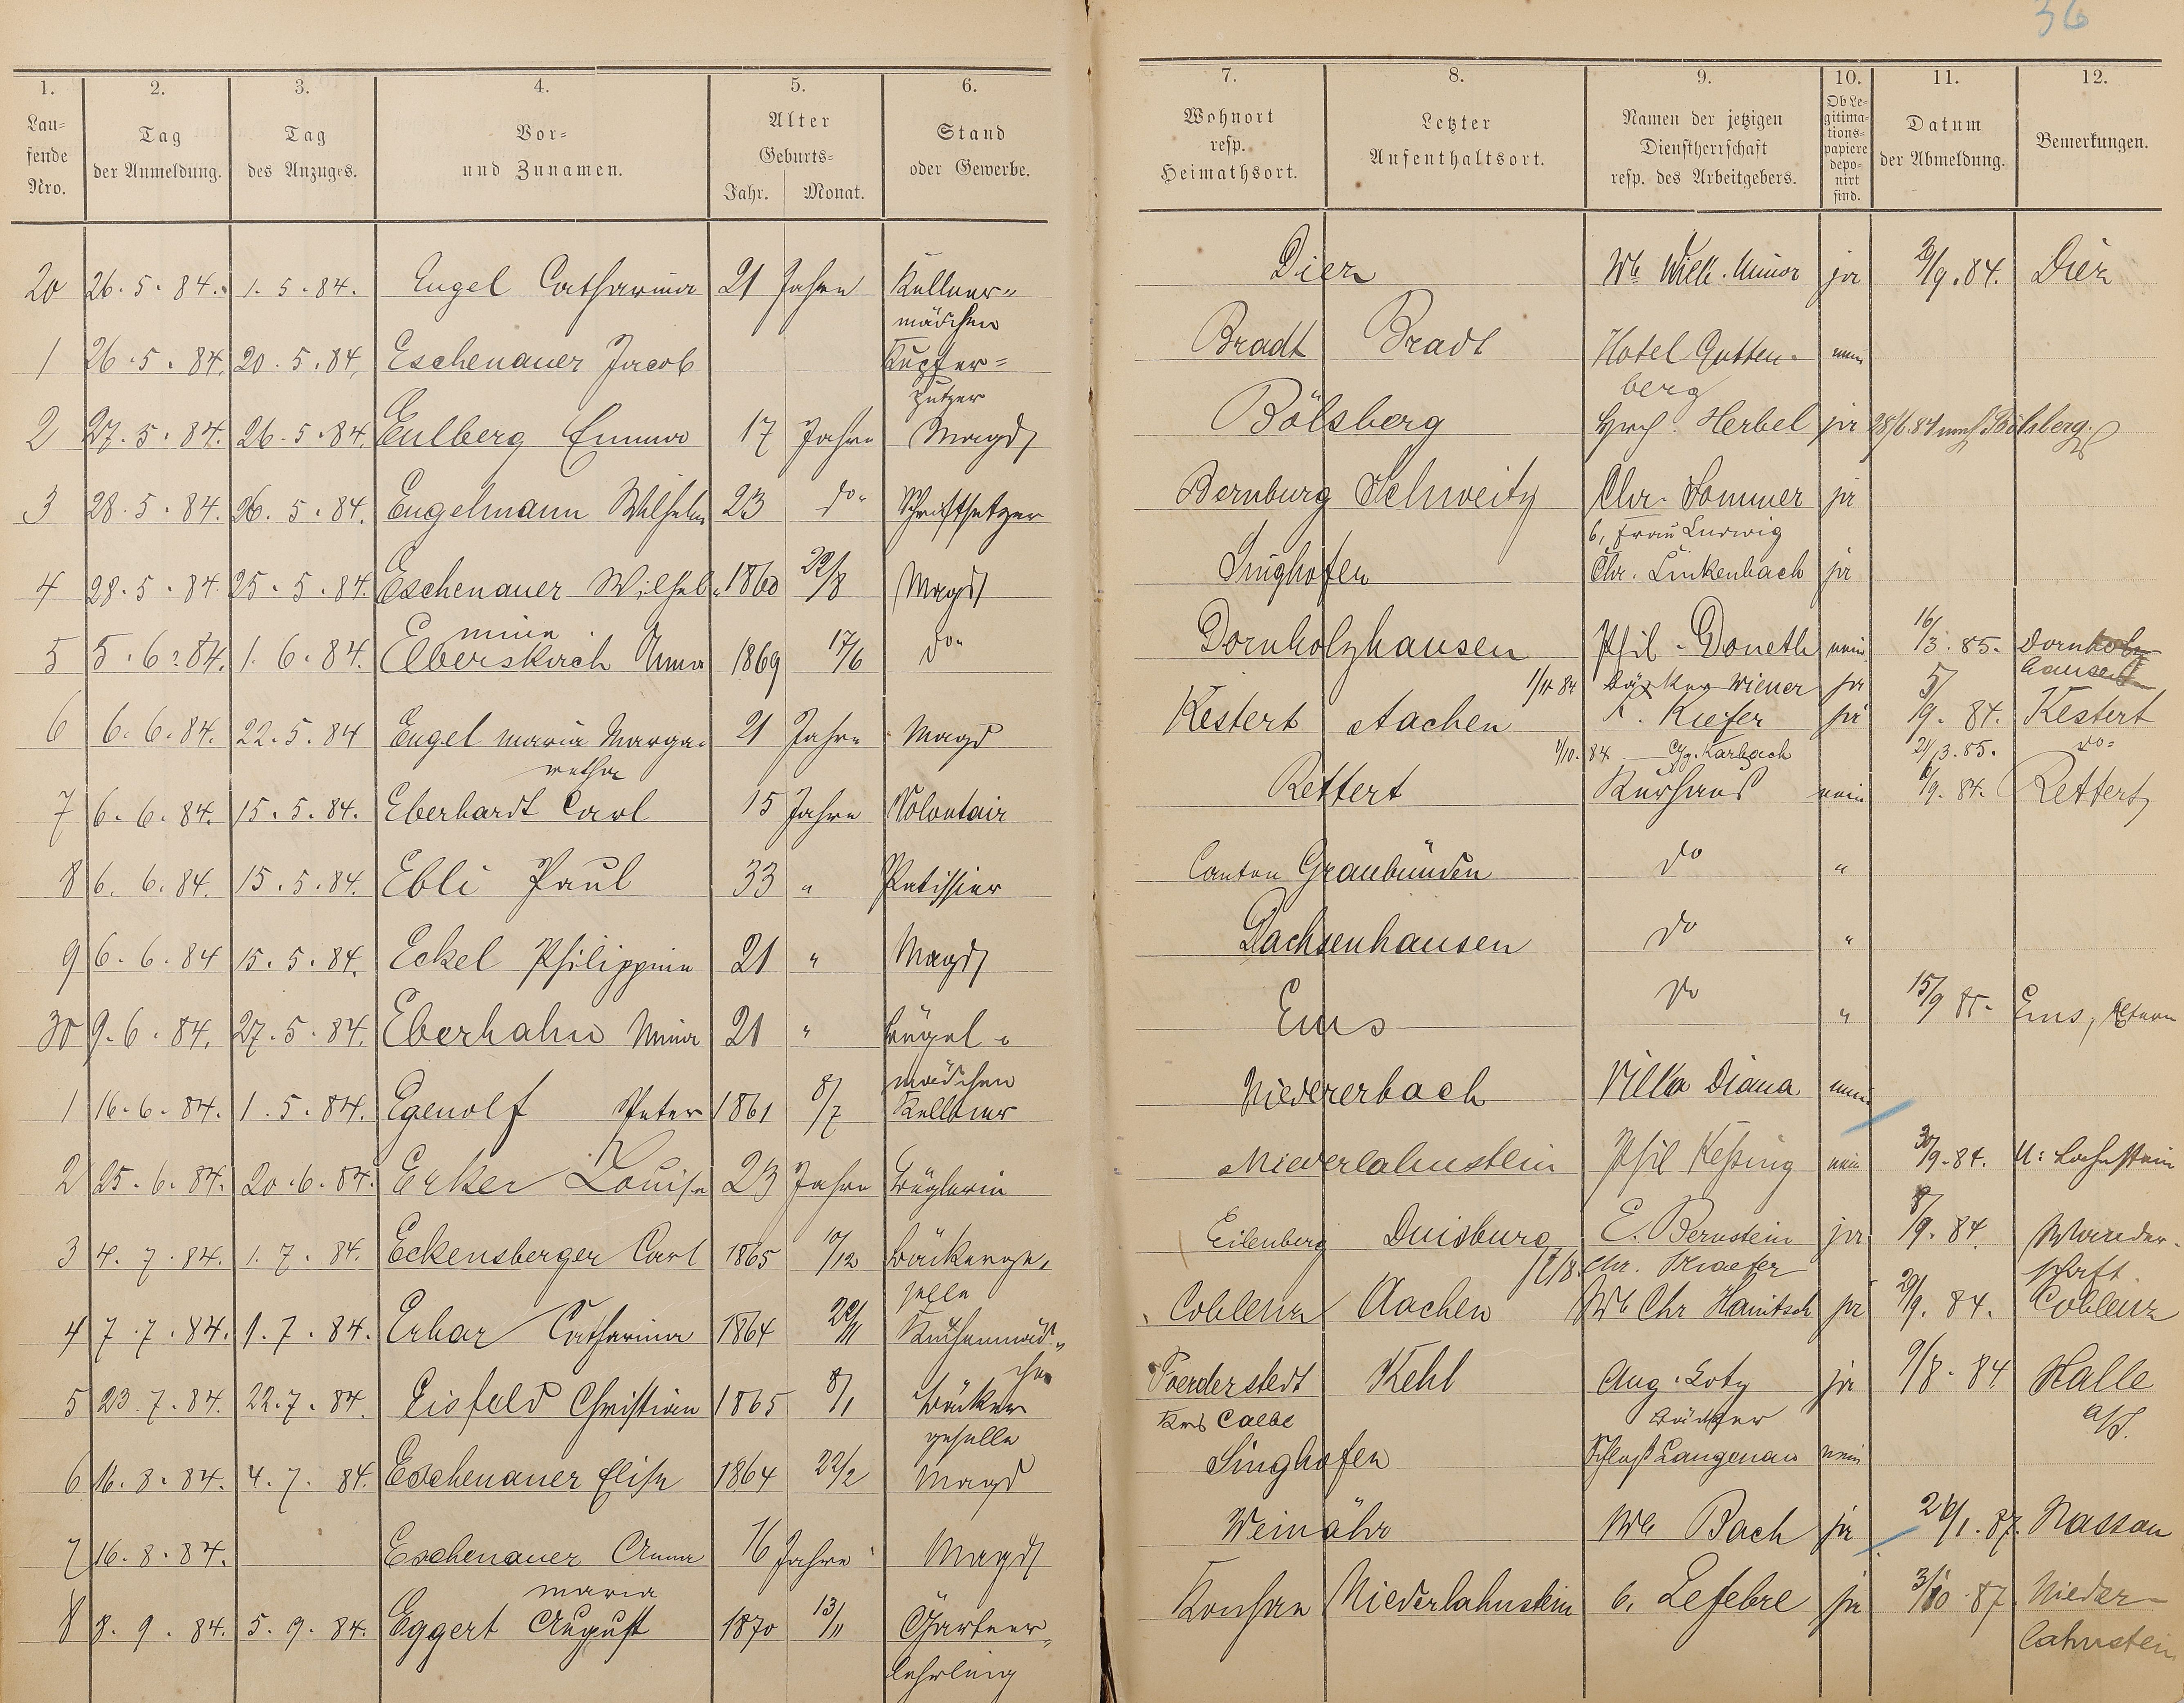 36
1. 2. 3. 4. 5. 6. 7. 8. 9. 10. 11. 12.
Lau-
fende
Nro.
Tag
der Anmeldung.
Tag
des Anzuges.
Vor-
und Zunamen.
Alter
Geburts-
Jahr. Monat.
Stand
oder Gewerbe.
Wohnort
resp.
Heimathsort.
Letzter
Aufenthaltsort.
Namen der jetzigen
Dienstherrschaft
resp. des Arbeitgebers.
Ob Le-
gitima-
tions-
papiere
depo-
nirt
sind.
Datum
der Abmeldung.
Bemerkungen.
20 26.5.84. 1.5.84. Engel Catharina 21 Jahre Kellner- Diez Wb Wilh. Minor ja 29/9.84. Diez
mädchen
1 26.5.84. 20.5.84. Eschenauer Jacob Kupfer= Bradt Bradt Hotel Gutten- nein
putzer berg
2 27.5.84. 26.5.84. Eulberg Emma 17 Jahre Magd Bölsberg Herbel ja 28/6.84 nach Bölsberg.
3 28.5.84. 26.5.84. Engelmann Wilhelm 23 do. Schriftsetzer Bernburg Schweitz Chr. Sommer ja
6, Frau Ludwig
4 28.5.84. 25.5.84. Eschenauer Wilhel- 1860 22/8 Magd Singhofen Chr. Linkenbach ja
mine
5 5.6.84. 1.6.84. Elberskirch Anna 1869 17/6 do. Dornholzhausen Phil. Doneth nein 16/3.85. Dornholz
hausen
1/11 84 Bäcker Wiener ja
6 6.6.84. 22.5.84 Engel Maria Marga- 21 Jahre Magd Kestert Aachen K. Kiefer ja 5/9.84. Kestert
retha 1/10.84 Karbach 21/3.85. do=
7 6.6.84. 15.5.84. Eberhardt Carl 15 Jahre Volontair Rettert Kurhaus nein 6/9.84. Rettert
8 6.6.84. 15.5.84. Ebli Paul 33 " Patissier Canton Graubünden do "
9 6.6.84 15.5.84. Eckel Philippine 21 " Magd Dachsenhausen do "
30 9.6.84. 27.5.84. Eberhahn Mina 21 " Bügel- Ems do " 15/9 85. Ems, Eltern
mädchen
1 16.6.84. 1.5.84. Egenolf Peter 1861 8/7 Kellner Niedererbach Villa Diana nein
2 25.6.84. 20.6.84. Erker Louise 23 Jahre Büglerin Niederlahnstein Phil Keßing nein 30/9.84. N: Lahnstein
3 4.7.84. 1.7.84. Eckensberger Carl 1865 10/12 Bäckerge- Eilenberg Duisburg E. Bernstein ja 8/9.84. Wander-
selle Chr. schaft.
4 7.7.84. 1.7.84. Erbar Catharina 1864 22/11 Küchenmäd- Coblenz Aachen Wb Chr Hanitsch ja 29/9.84. Coblenz
chen
5 23.7.84. 22.7.84. Eisfeld Christian 1865 8/1 Bäcker Foerderstedt Kehl Aug. Lotz ja 9/8.84 Halle
geselle Krs Calbe Bäcker a/S.
6 16.8.84. 4.7.84. Eschenauer Elise 1864 22/2 Magd Singhofen Schloß Langenau nein
7 16.8.84. Eschenauer Anna 16 Jahre Magd Weinähr Wb Bach ja 26/1.87. Nassau
Maria
8 8.9.84. 5.9.84. Eggert August 1870 13/11 Gärtner- Niederlahnstein C. Lefebre ja 3/10.87. Nieder-
lehrling lahnstein